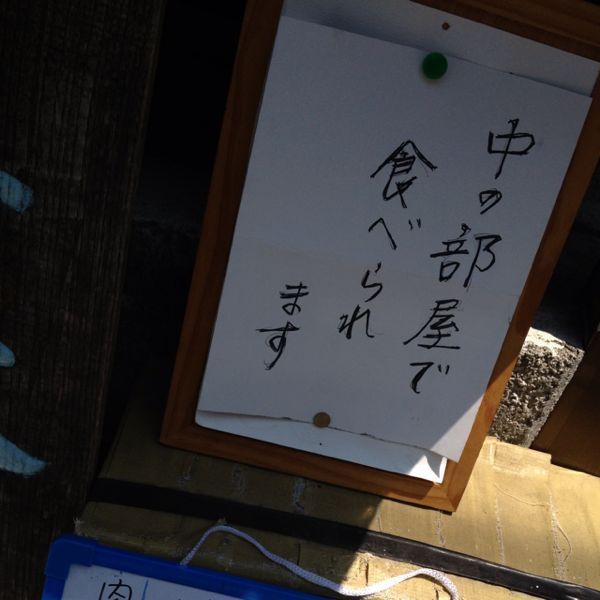 中の部屋で
食べられ
ます
肉